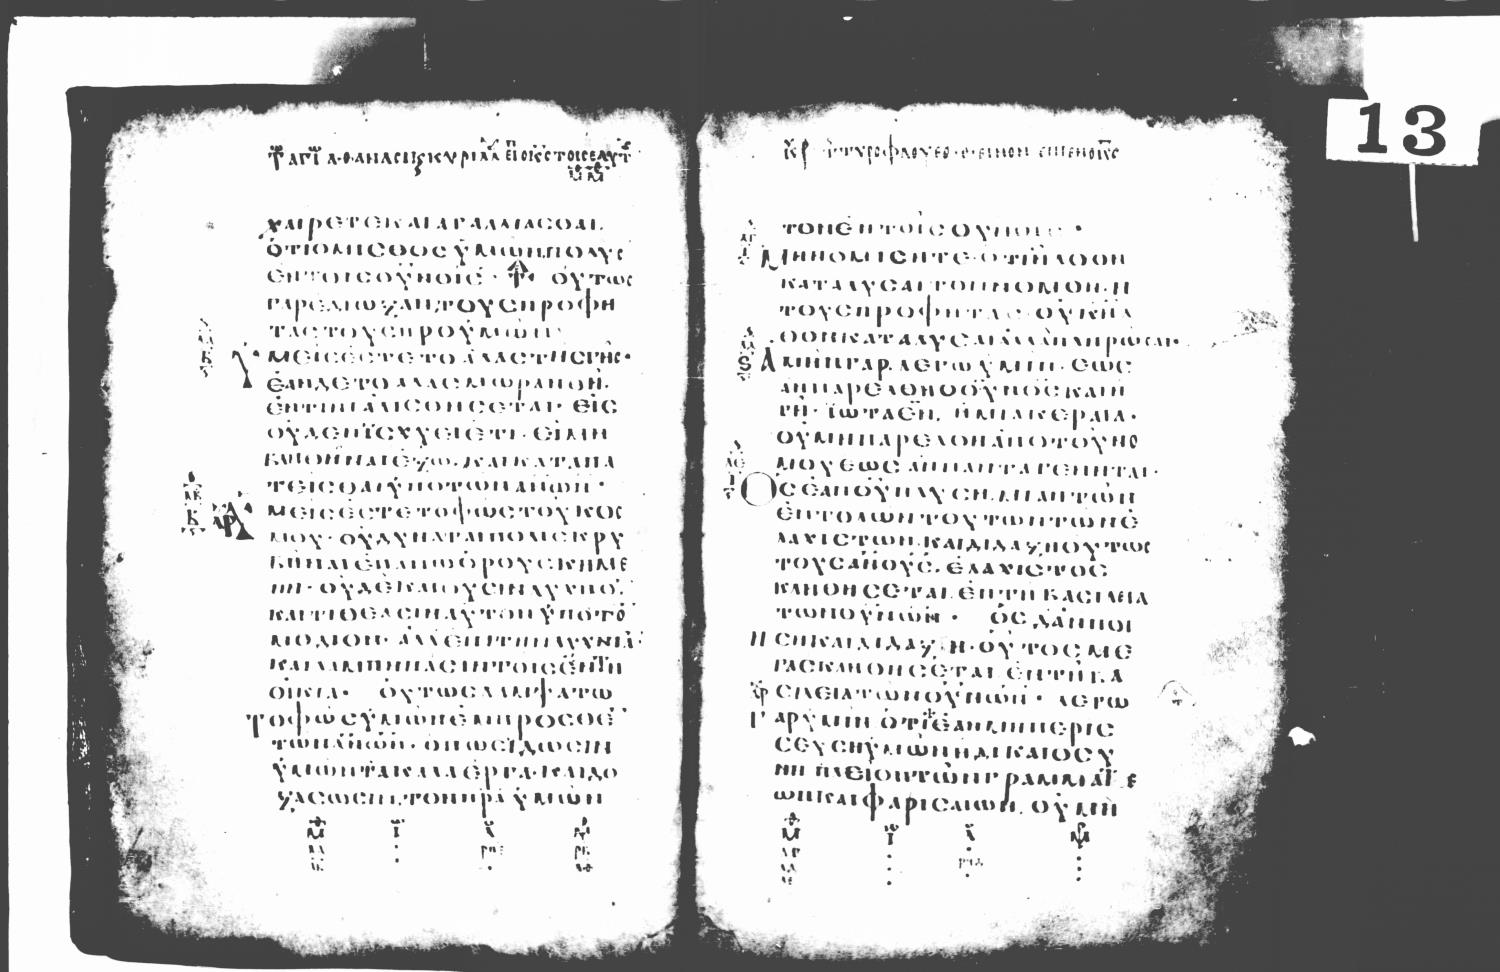 13
ΧΑΙΡΕΤΕ ΚΑΙ ΑΓΑΛΛΙΑΣΘΑΙ
ὉΤΙ Ο ΜΙΣΘΟΣ ΥΜΩΝ ΠΟΛΥΣ
ΕΝ ΤΟΙΣ ΟΥΝΟΙΣ · ΟΥΤΩΣ
ΓΑΡ ΕΔΙΩΞΑΝ ΤΟΥΣ ΠΡΟΦΗ
ΤΑΣ ΤΟΥΣ ΠΡΟ ΥΜΩΝ
ΥΜΕΙΣ ΕΣΤΕ ΤΟ ΑΛΑΣ ΤΗΣ ΓΗΣ·
ΕΑΝ ΔΕ ΤΟ ΑΛΑΣ ΜΩΡΑΝΘΗ.
ΕΝ ΤΙΝΙ ΑΛΙΣΘΗΣΕΤΑΙ· ΕΙΣ
ΟΥΔΕΝ ΙΣΧΥΕΙ ΕΤΙ· ΕΙ ΜΗ
ΒΛΗΘΗΝΑΙ ΕΞΩ. ΚΑΙ ΚΑΤΑΠΑ
ΤΕΙΣΘΑΙ ΥΠΟ ΤΩΝ ΑΝΩΝ ·
ΥΜΕΙΣ ΕΣΤΕ ΤΟ ΦΩΣ ΤΟΥ ΚΟΣ
ΜΟΥ· ΟΥ ΔΥΝΑΤΑΙ ΠΟΛΙΣ ΚΡΥ
ΒΗΝΑΙ ΕΠΑΝΩ ΟΡΟΥΣ ΚΗΜΕ
ΝΗ· ΟΥΔΕ ΚΑΙΟΥΣΙΝ ΛΥΧΝΟ̄.
ΚΑΙ ΤΙΘΕΑΣΙΝ ΑΥΤΟΝ ΥΠΟ ΤΟ̄
ΜΟΔΙΟΝ· ΑΛΛ ΕΠΙ ΤΗΝ ΛΥΧΝΙᾹ·
ΚΑΙ ΛΑΜΠΗ ΠΑΣΙΝ ΤΟΙΣ ΕΝ ΤΗ
ΟΙΚΙΑ· ΟΥΤΩΣ ΛΑΜΨΑΤΩ
ΤΟ ΦΩΣ ΥΜΩΝ ΕΜΠΡΟΣΘΕ̄
ΤΩΝ ΑΝΩΝ· ΟΠΩΣ ΙΔΩΣΙΝ
ΥΜΩΝ ΤΑ ΚΑΛΑ ΕΡΓΑ· ΚΑΙ ΔΟ
ΞΑΣΩΣΙΝ ΤΟΝ ΠΡΑ ΥΜΩΝ
ΤΟΝ ΕΝ ΤΟΙΣ ΟΥΝΟΙΣ ·
ΜΗ ΝΟΜΙΣΗΤΕ· ΟΤΙ ΗΛΘΟΝ
ΚΑΤΑΛΥΣΑΙ ΤΟΝ ΝΟΜΟΝ· Η
ΤΟΥΣ ΠΡΟΦΗΤΑΣ· ΟΥΚ ΗΛ
ΘΟΝ ΚΑΤΑΛΥΣΑΙ ΑΛΛΑ ΠΛΗΡΩΣΑΙ·
ΑΜΗΝ ΓΑΡ ΛΕΓΩ ΥΜΙΝ· ΕΩΣ
ΑΝ ΠΑΡΕΛΘΗ Ο ΟΥΝΟΣ ΚΑΙ Η
ΓΗ· ΙΩΤΑ ΕΝ, Η ΜΙΑ ΚΕΡΑΙΑ·
ΟΥ ΜΗ ΠΑΡΕΛΘΗ ΑΠΟ ΤΟΥ ΝΟ
ΜΟΥ ΕΩΣ ΑΝ ΠΑΝΤΑ ΓΕΝΗΤΑΙ·
ΟΣ ΕΑΝ ΟΥΝ ΛΥΣΗ ΜΙΑΝ ΤΩΝ
ΕΝΤΟΛΩΝ ΤΟΥΤΩΝ ΤΩΝ Ε
ΛΑΧΙΣΤΩΝ. ΚΑΙ ΔΙΔΑΞΗ ΟΥΤΩΣ
ΤΟΥΣ ΑΝΟΥΣ. ΕΛΑΧΙΣΤΟΣ
ΚΛΗΘΗΣΕΤΑΙ ΕΝ ΤΗ ΒΑΣΙΛΕΙΑ
ΤΩΝ ΟΥΝΩΝ · ΟΣ Δ ΑΝ ΠΟΙ
ΗΣΗ ΚΑΙ ΔΙΔΑΞΗ· ΟΥΤΟΣ ΜΕ
ΓΑΣ ΚΛΗΘΗΣΕΤΑΙ ΕΝ ΤΗ ΒΑ
ΣΙΛΕΙΑ ΤΩΝ ΟΥΝΩΝ · ΛΕΓΩ
ΓΑΡ ΥΜΙΝ ΟΤΙ ΕΑΝ ΜΗ ΠΕΡΙΣ
ΣΕΥΣΗ ΥΜΩΝ Η ΔΙΚΑΙΟΣΥ
ΝΗ ΠΛΕΙΟΝ ΤΩΝ ΓΡΑΜΜΑΤΕ
ΩΝ ΚΑΙ ΦΑΡΙΣΑΙΩΝ. ΟΥ ΜΗ